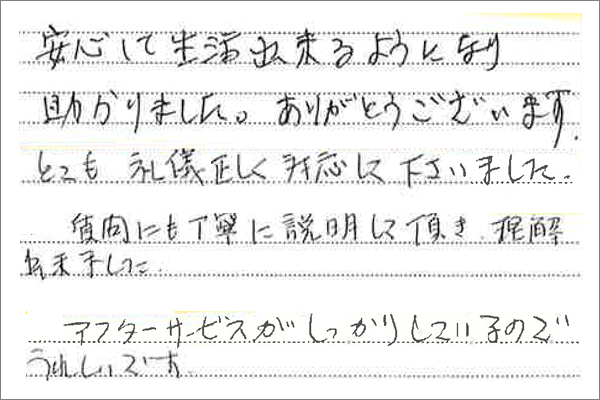 安心して生活出来るようになり
助かりました。ありがとうございます。
とても礼儀正しく対応して下さいました。
質問にも丁寧に説明して頂き、理解
出来ました。
アフターサービスがしっかりしているので
うれしいです。